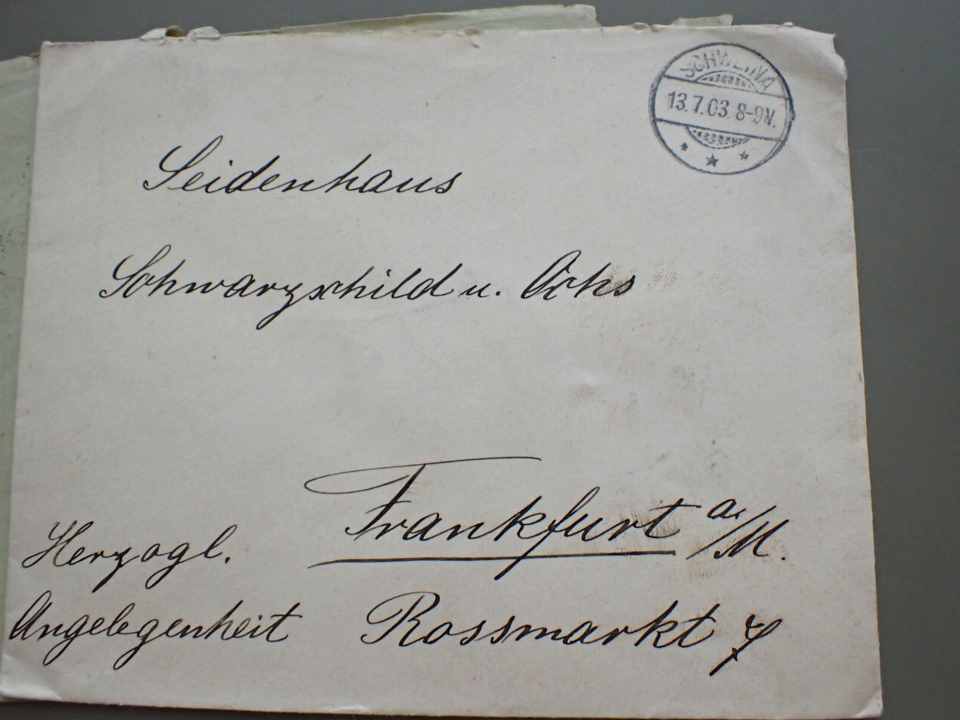 SCHWEINA
13.7.03. 8-9N.
Seidenhaus
Schwarzschild u. Ochs
Frankfurt a./M.
Herzogl.
Angelegenheit
Rossmarkt